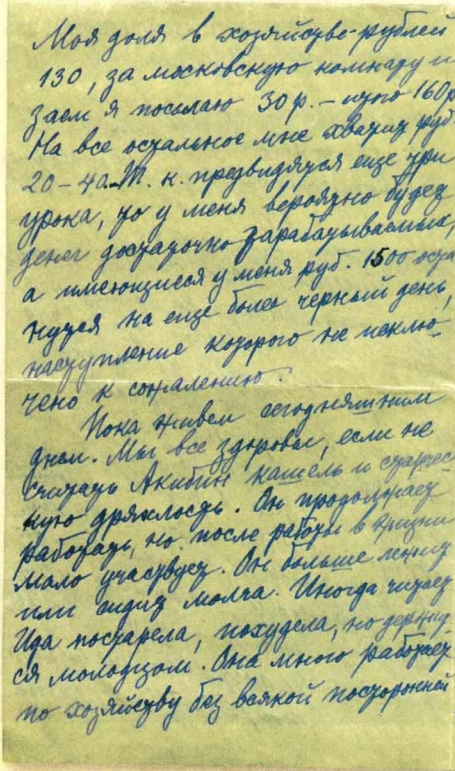 Моя доля в хозяйстве-рублей
130, за московскую комнату и
заем я посылаю 30 р. – итого 160 р
На все остальное мне хватит руб
20–40. Т. к. предвидятся еще три
урока, то у меня вероятно будет
денег достаточно зарабатываемых,
а имеющиеся у меня руб. 1500 оста
нутся на еще более черный день,
наступление которого не исклю-
чено к сожалению.
Пока живем сегодняшним
днем. Мы все здоровы, если не
считать Акибин кашель и старчес
кую дряхлость. Он продолжает
работать, но после работы в жизни
мало участвует. Он больше лежит
или сидит молча. Иногда читает
Ида постарела, похудела, но держит
ся молодцом. Она много работает
по хозяйству без всякой посторонней